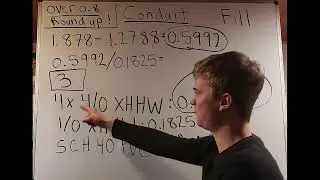 over 0.8 Conduit Fill
Roundup!
1.878 - 1.2788 = 0.5992
0.5992/0.1825=
3
4x 4/0 XHHW : 0.
1/0 XHH : 0.1825
SCH 40